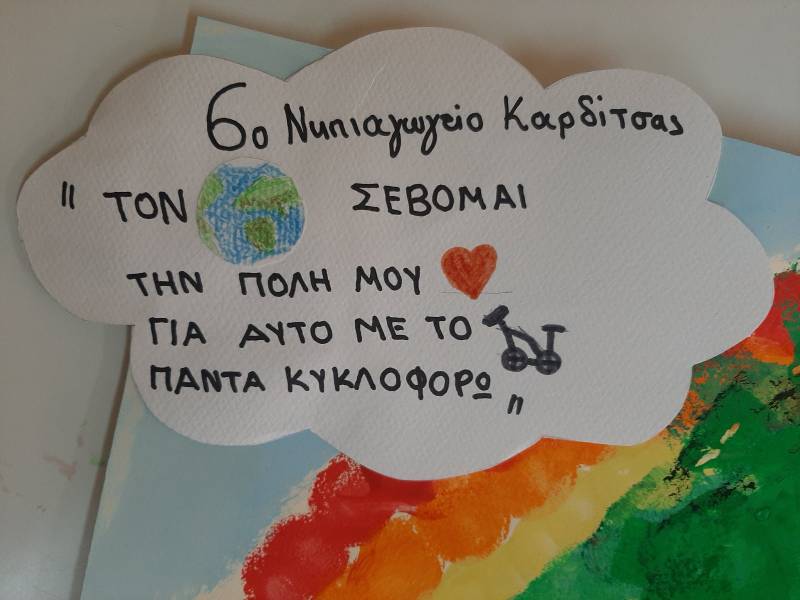 6ο Νηπιαγωγείο Καρδίτσας
" ΤΟΝ ΣΕΒΟΜΑΙ
ΤΗΝ ΠΟΛΗ ΜΟΥ
ΓΙΑ ΑΥΤΟ ΜΕ ΤΟ
ΠΑΝΤΑ ΚΥΚΛΟΦΟΡΩ "